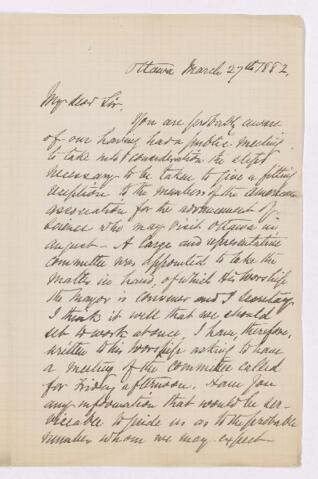 Ottawa March 27th 1882,
My dear Sir.
You are probably aware
of our having had a public meeting
to take into consideration the steps
necessary to be taken to give a fitting
reception to the members of the American
association for the advancement of
science who may visit Ottawa in
august - A large and representative
Committee was appointed to take the
matter in hand, of which His Worship
the Mayor is convener and I secretary
I think it well that we should
set to work at once. I have, therefore,
written to his Worship asking to have
a meeting of the Committee called
for Friday afternoon. Have you
any information that would be ser-
viceable to guide us as to the probable
number whom we may expect